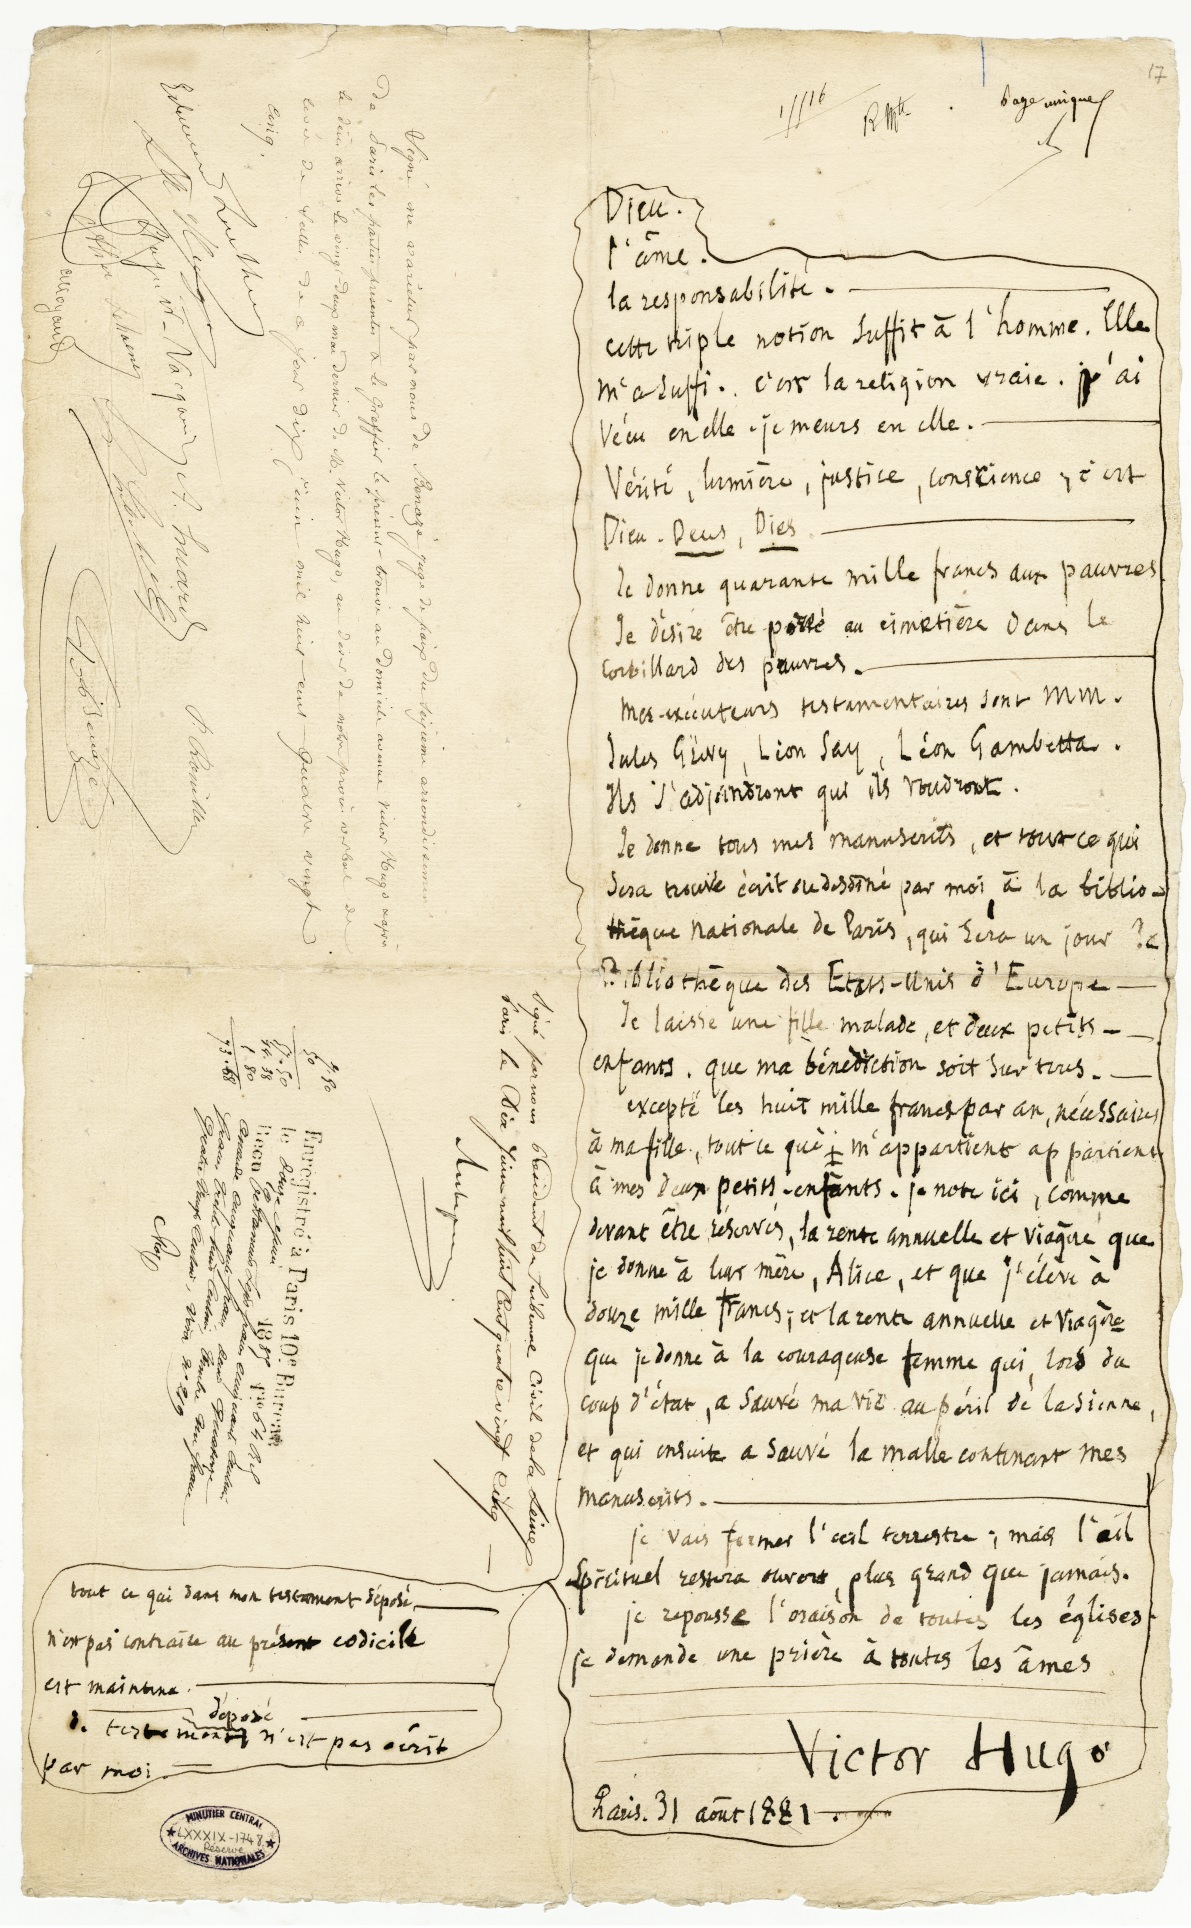 17
Page unique
Dieu.
l'âme.
la responsabilité.
cette triple notion suffit à l'homme. Elle
m'a suffi. c'est la religion vraie. j'ai
vécu en elle. je meurs en elle.
Vérité, lumière, justice, conscience, c'est
Dieu. Deus, Dies.
Je donne quarante mille francs aux pauvres.
Je désire être porté au cimetière dans le
corbillard des pauvres.
Mes exécuteurs testamentaires sont MM.
Jules Grévy, Léon Say, Léon Gambetta.
Ils s'adjoindront qui ils voudront.
Je donne tous mes manuscrits, et tout ce qui
sera trouvé écrit ou dessiné par moi, à la biblio-
thèque nationale de Paris, qui sera un jour la
Bibliothèque des Etats-Unis d'Europe
Je laisse une fille malade, et deux petits-
enfants. que ma bénédiction soit sur tous.
excepté les huit mille francs par an, nécessaires
à ma fille, tout ce qui m'appartient appartient
à mes deux petits-enfants. je note ici, comme
devant être réservés, la rente annuelle et viagère que
je donne à leur mère, Alice, et que j'élève à
douze mille francs; et la rente annuelle et viagère
que je donne à la courageuse femme qui, lors du
coup d'état, a sauvé ma vie au péril de la sienne,
et qui ensuite a sauvé la malle contenant mes
manuscrits.
je vais fermer l'oeil terrestre; mais l'oeil
spirituel restera ouvert, plus grand que jamais.
je repousse l'oraison de toutes les églises.
je demande une prière à toutes les âmes
Victor Hugo
Paris. 31 août 1881.
tout ce qui dans mon testament déposé
n'est pas contraire au présent codicille
est maintenu.
déposé
le testament n'est pas écrit
par moi
Signé ne varietur par nous de Benazé juge de paix du seizième arrondissement
de Paris les parties présentes & le Greffier le présent trouvé au domicile avenue Victor Hugo après
le décès arrivé le vingt deux mai dernier de M. Victor Hugo, au dire de notre procès verbal de
levée de scellés de ce jour dix juin mil huit cent quatre vingt
cinq.
Edouard Lockroy
P. Meurice
Signé par nous Président du tribunal civil de la Seine
Paris le dix juin mil huit cent quatre vingt cinq
Aubépin
Enregistré à Paris 10e Bureau
MINUTIER CENTRAL
LXXXIX-1748
Réserve
ARCHIVES NATIONALES